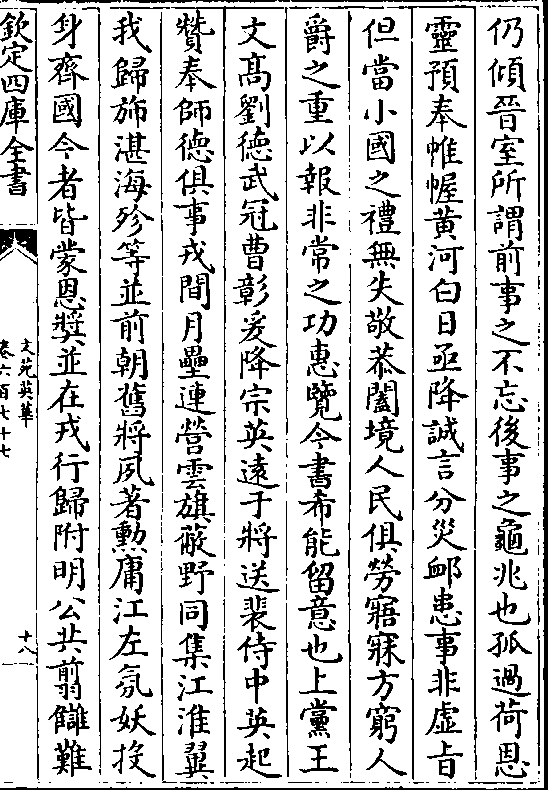 仍傾晉室所謂前事之不忘後事之龜兆也孤過荷恩
靈預奉帷幄黄河白日亟降誠言分災卹患事非虚旨
但當小國之禮無失敬恭闔境人民俱勞寤寐方窮人
爵之重以報非常之功惠覽今書希能留意也上黨王
文髙劉德武冠曹彰爰降宗英遠于將送裴侍中英起
贊奉師徳俱事戎間月壘連營雲旗蔽野同集江淮翼
我歸斾湛海珍等並前朝舊將夙著勲庸江左氛妖投
身齊國今者皆蒙恩奬並在戎行歸附明公共翦讎難
欽定四庫全書
文苑英華
卷六百七十七
十八